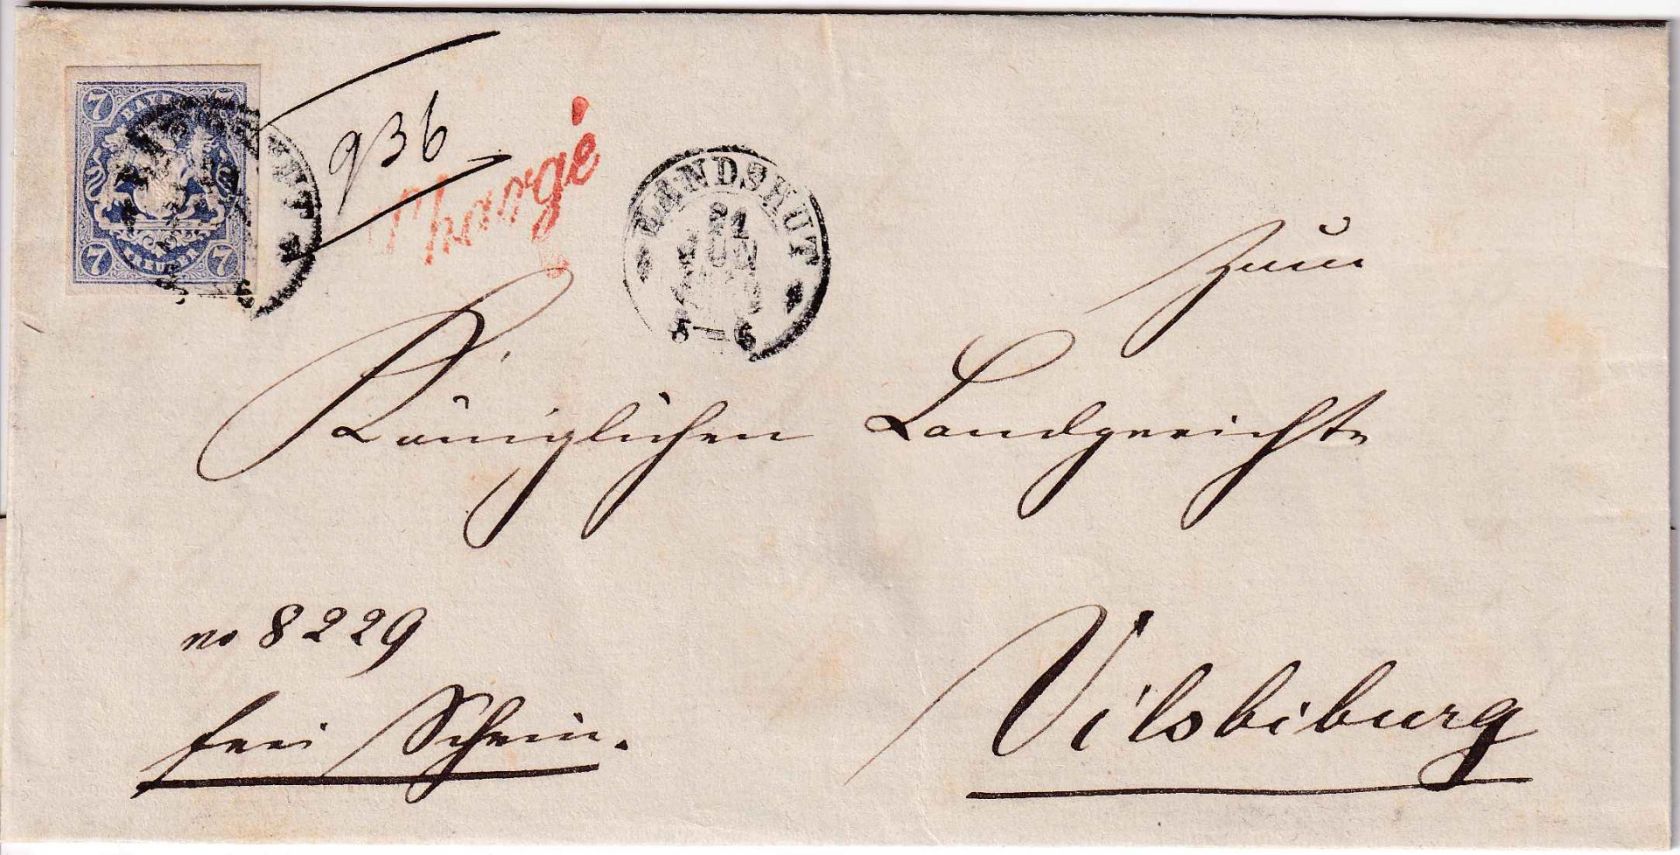 7 7
7 7
936
Chargé
LANDSHUT
21
5-6
Zum
Königlichen Landgerichte
no 8229
frei Schein.
Vilsbiburg